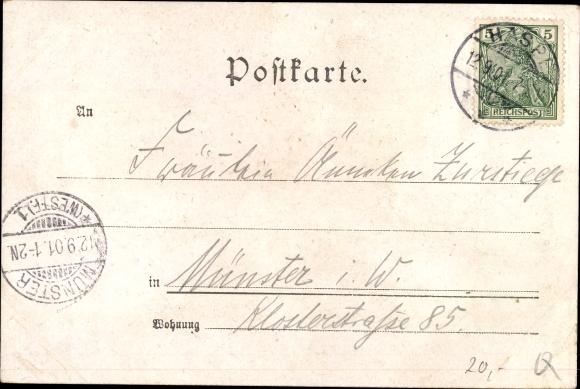 5 5
HASPE
12.9.01
REICHSPOST
Postkarte.
An
Fräulein Ännchen Zurstiege
MÜNSTER
12.9.01.1-2N.
*(WESTF.)1
in Münster i. W.
Wohnung Klosterstraße 85.
20,-